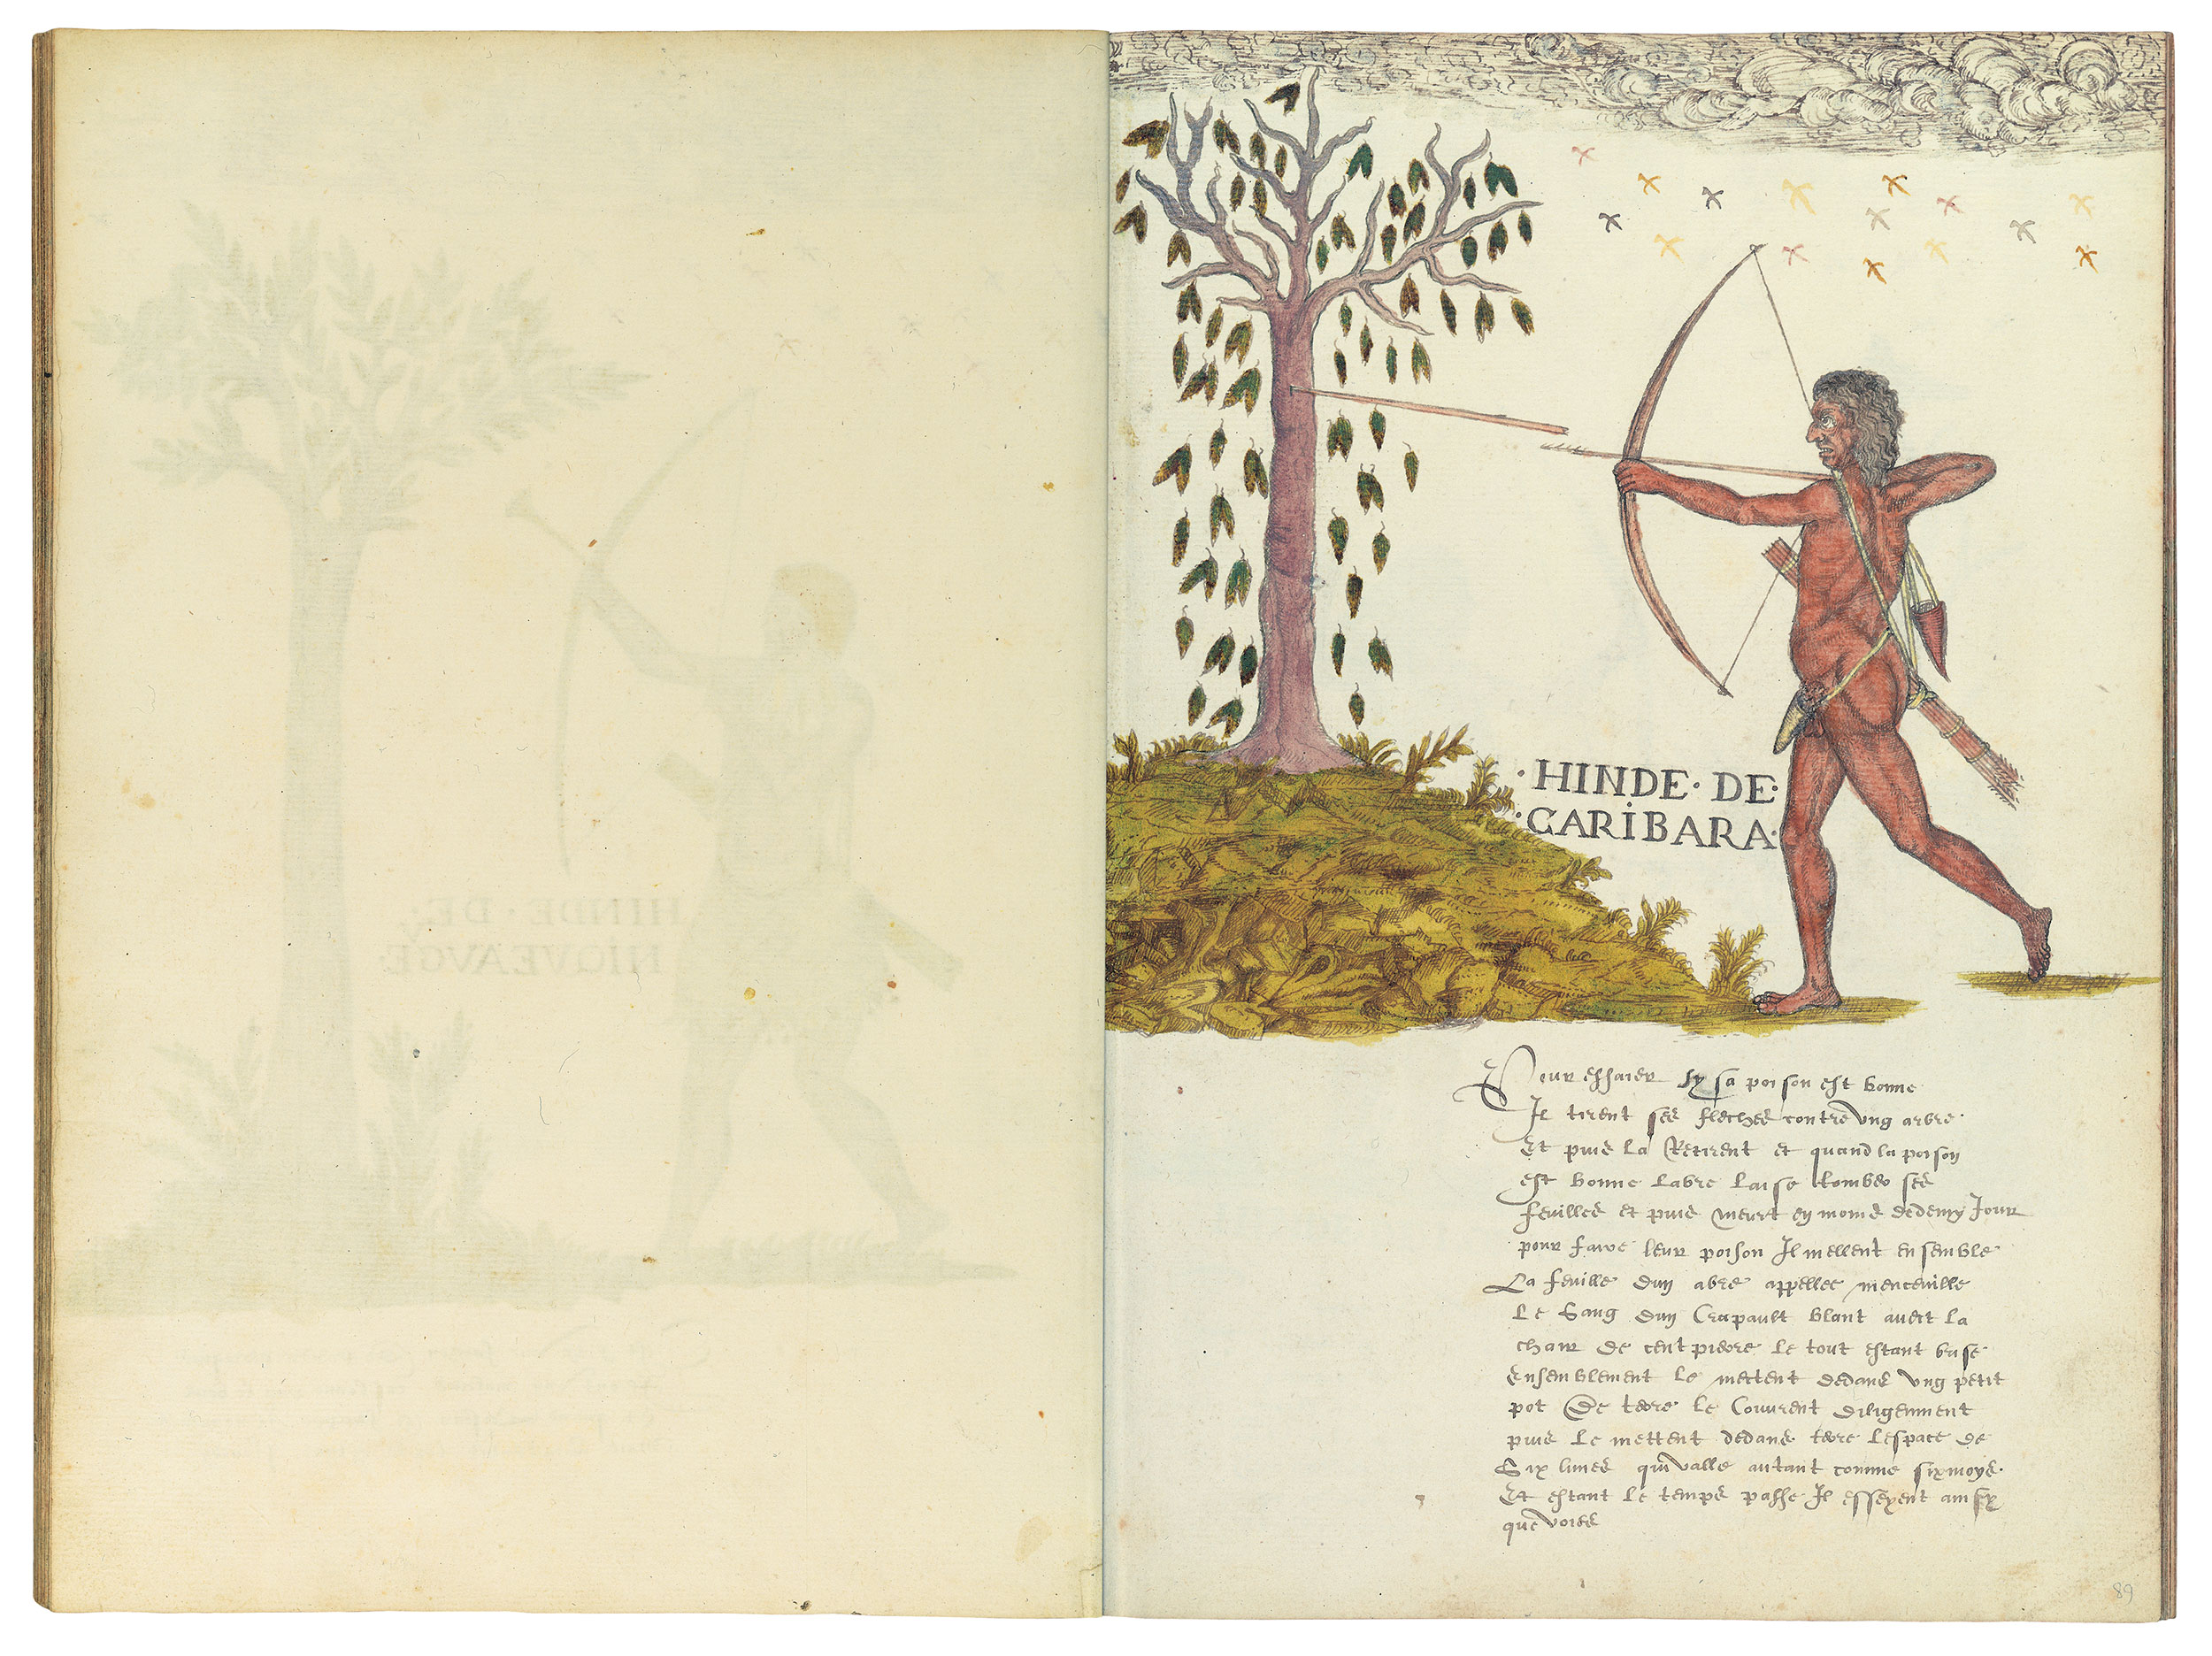 ·HINDE·DE·
·CARIBARA·
Pour essaier sy sa poison est bonne
Il tirent ses fleches contre ung arbre
Et puis la Retirent et quand la poison
est bonne labre laise tomber ses
feuilles et puis meurt en moins dedemy Jour
pour faire leur poison Il mellent ensemble
La feuille dun abre appellee menceuille
Le Sang dun Crapault blant avect la
chair de centpiedre le tout estant brise
Ensemblement le mettent dedans ung petit
pot De terre le Couvrent diligenment
puis Le mettent dedans terre Lespace de
Six lunes qui valle autant comme sixmoys
Et estant le temps passe Il essexent ainsy
que voies
89
HINDE·DE